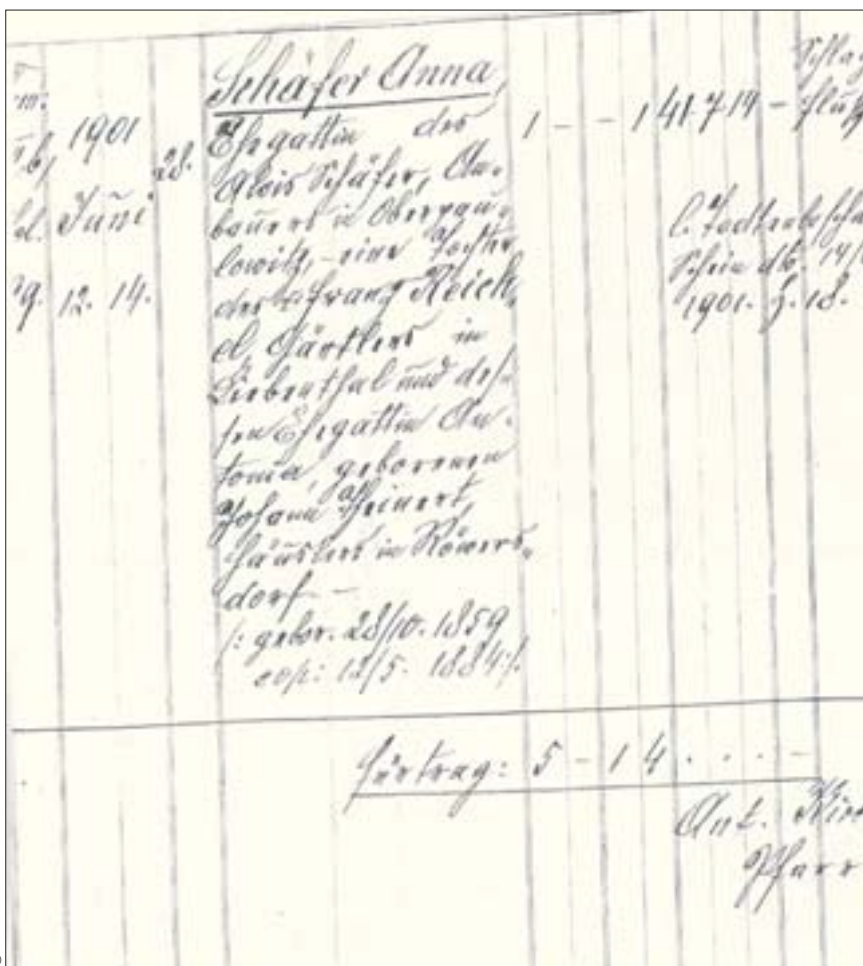 1901
Juni
12. 14.
28.
Schäfer Anna,
Ehegattin des
Alois Schäfer, An-
bauers in Oberpau-
lowitz, – eine Tochter
des Franz Reich-
el, Gärtlers in
Liebenthal und des-
sen Ehegattin An-
tonia, geborenen
Johann Heinert,
Häuslers in Röwers-
dorf –
/: gebor. 28/10. 1859
cop: 12/5. 1884 :/.
1 – – 1 41 7 19 –
Schlag
fluß
Schein dto. 14/
1901. Z. 18.
Fürtrag: 5 – 1 4 . . . –
Ant.
Pfarr